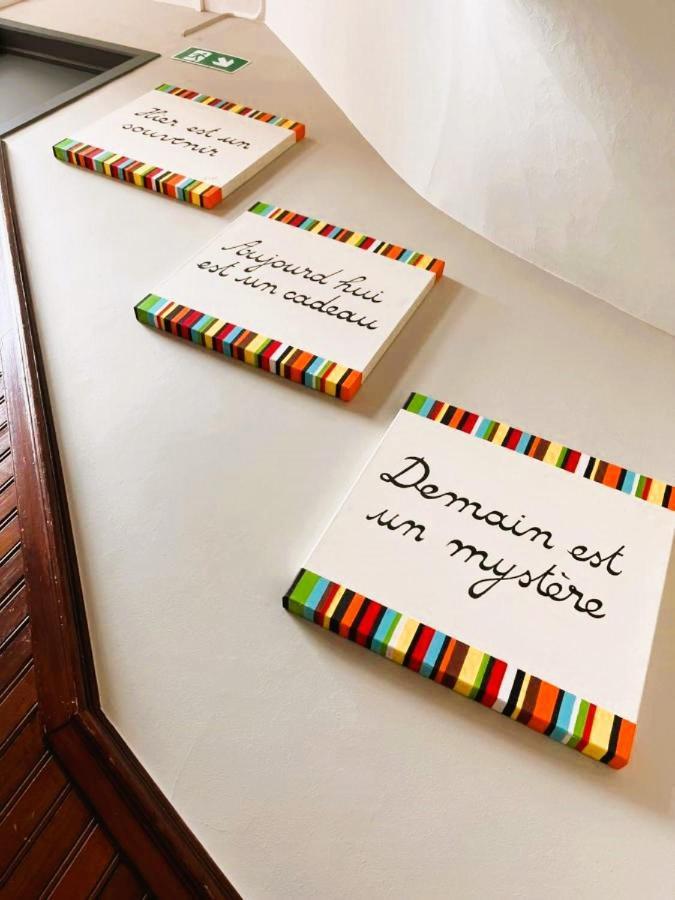 Hier est un
souvenir
Aujourd'hui
est un cadeau
Demain est
un mystère